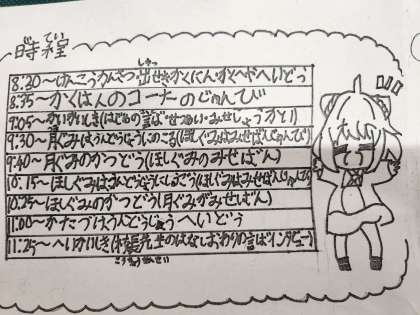 時程
てい
しゅっ
8:20〜けんこうかんさつ・出せきかくにん・かくへやへいどう
8:35〜かくはんのコーナーのじゅんび
9:05〜かいかいしき(はじめの言ば
9:30〜月ぐみはうんどうじょうにのこる(ほしぐみはみせばんじゅんび)
9:40〜月ぐみのかつどう(ほしぐみのみせばん)
10:15〜ほしぐみは
10:25〜ほしぐみのかつどう(月ぐみがみせばん)
11:00〜かたづけ、うんどうじょうへいどう
11:25〜へいかいしき(校長先生のはなし・おわりの言ば・インタビュー)
こうちょうせんせい